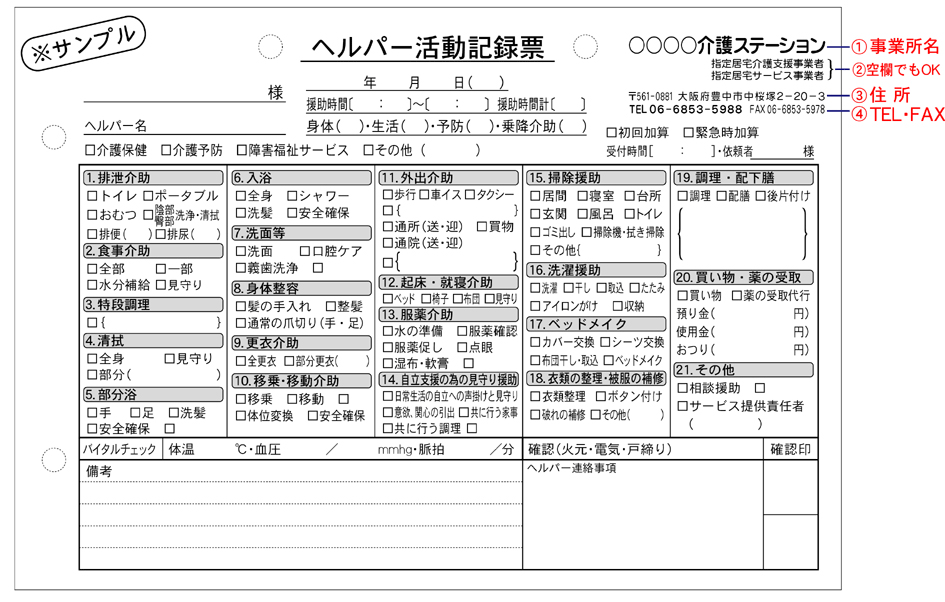 ※サンプル
ヘルパー活動記録票
〇〇〇〇介護ステーション
①事業所名
指定居宅介護支援事業者
指定居宅サービス事業者
②空欄でもOK
〒561-0881 大阪府豊中市中桜塚2-20-3
③住 所
TEL 06-6853-5988 FAX 06-6853-5978
④TEL・FAX
様
年 月 日( )
援助時間[ : ]~[ : ] 援助時間計[ ]
ヘルパー名
身体( )・生活( )・予防( )・乗降介助( )
□初回加算 □緊急時加算
□介護保健 □介護予防 □障害福祉サービス □その他( )
受付時間[ : ]・依頼者 様
1.排泄介助
□トイレ □ポータブル
□おむつ □陰部臀部洗浄・清拭
□排便( )□排尿( )
2.食事介助
□全部 □一部
□水分補給 □見守り
3.特段調理
□{ }
4.清拭
□全身 □見守り
□部分( )
5.部分浴
□手 □足 □洗髪
□安全確保 □
6.入浴
□全身 □シャワー
□洗髪 □安全確保
7.洗面等
□洗面 □口腔ケア
□義歯洗浄 □
8.身体整容
□髪の手入れ □整髪
□通常の爪切り(手・足)
9.更衣介助
□全更衣 □部分更衣( )
10.移乗・移動介助
□移乗 □移動 □
□体位変換 □安全確保
11.外出介助
□歩行 □車イス □タクシー
□{ }
□通所(送・迎) □買物
□通院(送・迎)
□{ }
12.起床・就寝介助
□ベッド □椅子 □布団 □見守り
13.服薬介助
□水の準備 □服薬確認
□服薬促し □点眼
□湿布・軟膏 □
14.自立支援の為の見守り援助
□日常生活の自立への声掛けと見守り
□意欲、関心の引出 □共に行う家事
□共に行う調理 □
15.掃除援助
□居間 □寝室 □台所
□玄関 □風呂 □トイレ
□ゴミ出し □掃除機・拭き掃除
□その他{ }
16.洗濯援助
□洗濯 □干し □取込 □たたみ
□アイロンがけ □収納
17.ベッドメイク
□カバー交換 □シーツ交換
□布団干し・取込 □ベッドメイク
18.衣類の整理・被服の補修
□衣類整理 □ボタン付け
□破れの補修 □その他( )
19.調理・配下膳
□調理 □配膳 □後片付け
{ }
20.買い物・薬の受取
□買い物 □薬の受取代行
預り金( 円)
使用金( 円)
おつり( 円)
21.その他
□相談援助 □
□サービス提供責任者
( )
バイタルチェック 体温 ℃・血圧 / mmhg・脈拍 /分
確認(火元・電気・戸締り)
確認印
備考
ヘルパー連絡事項